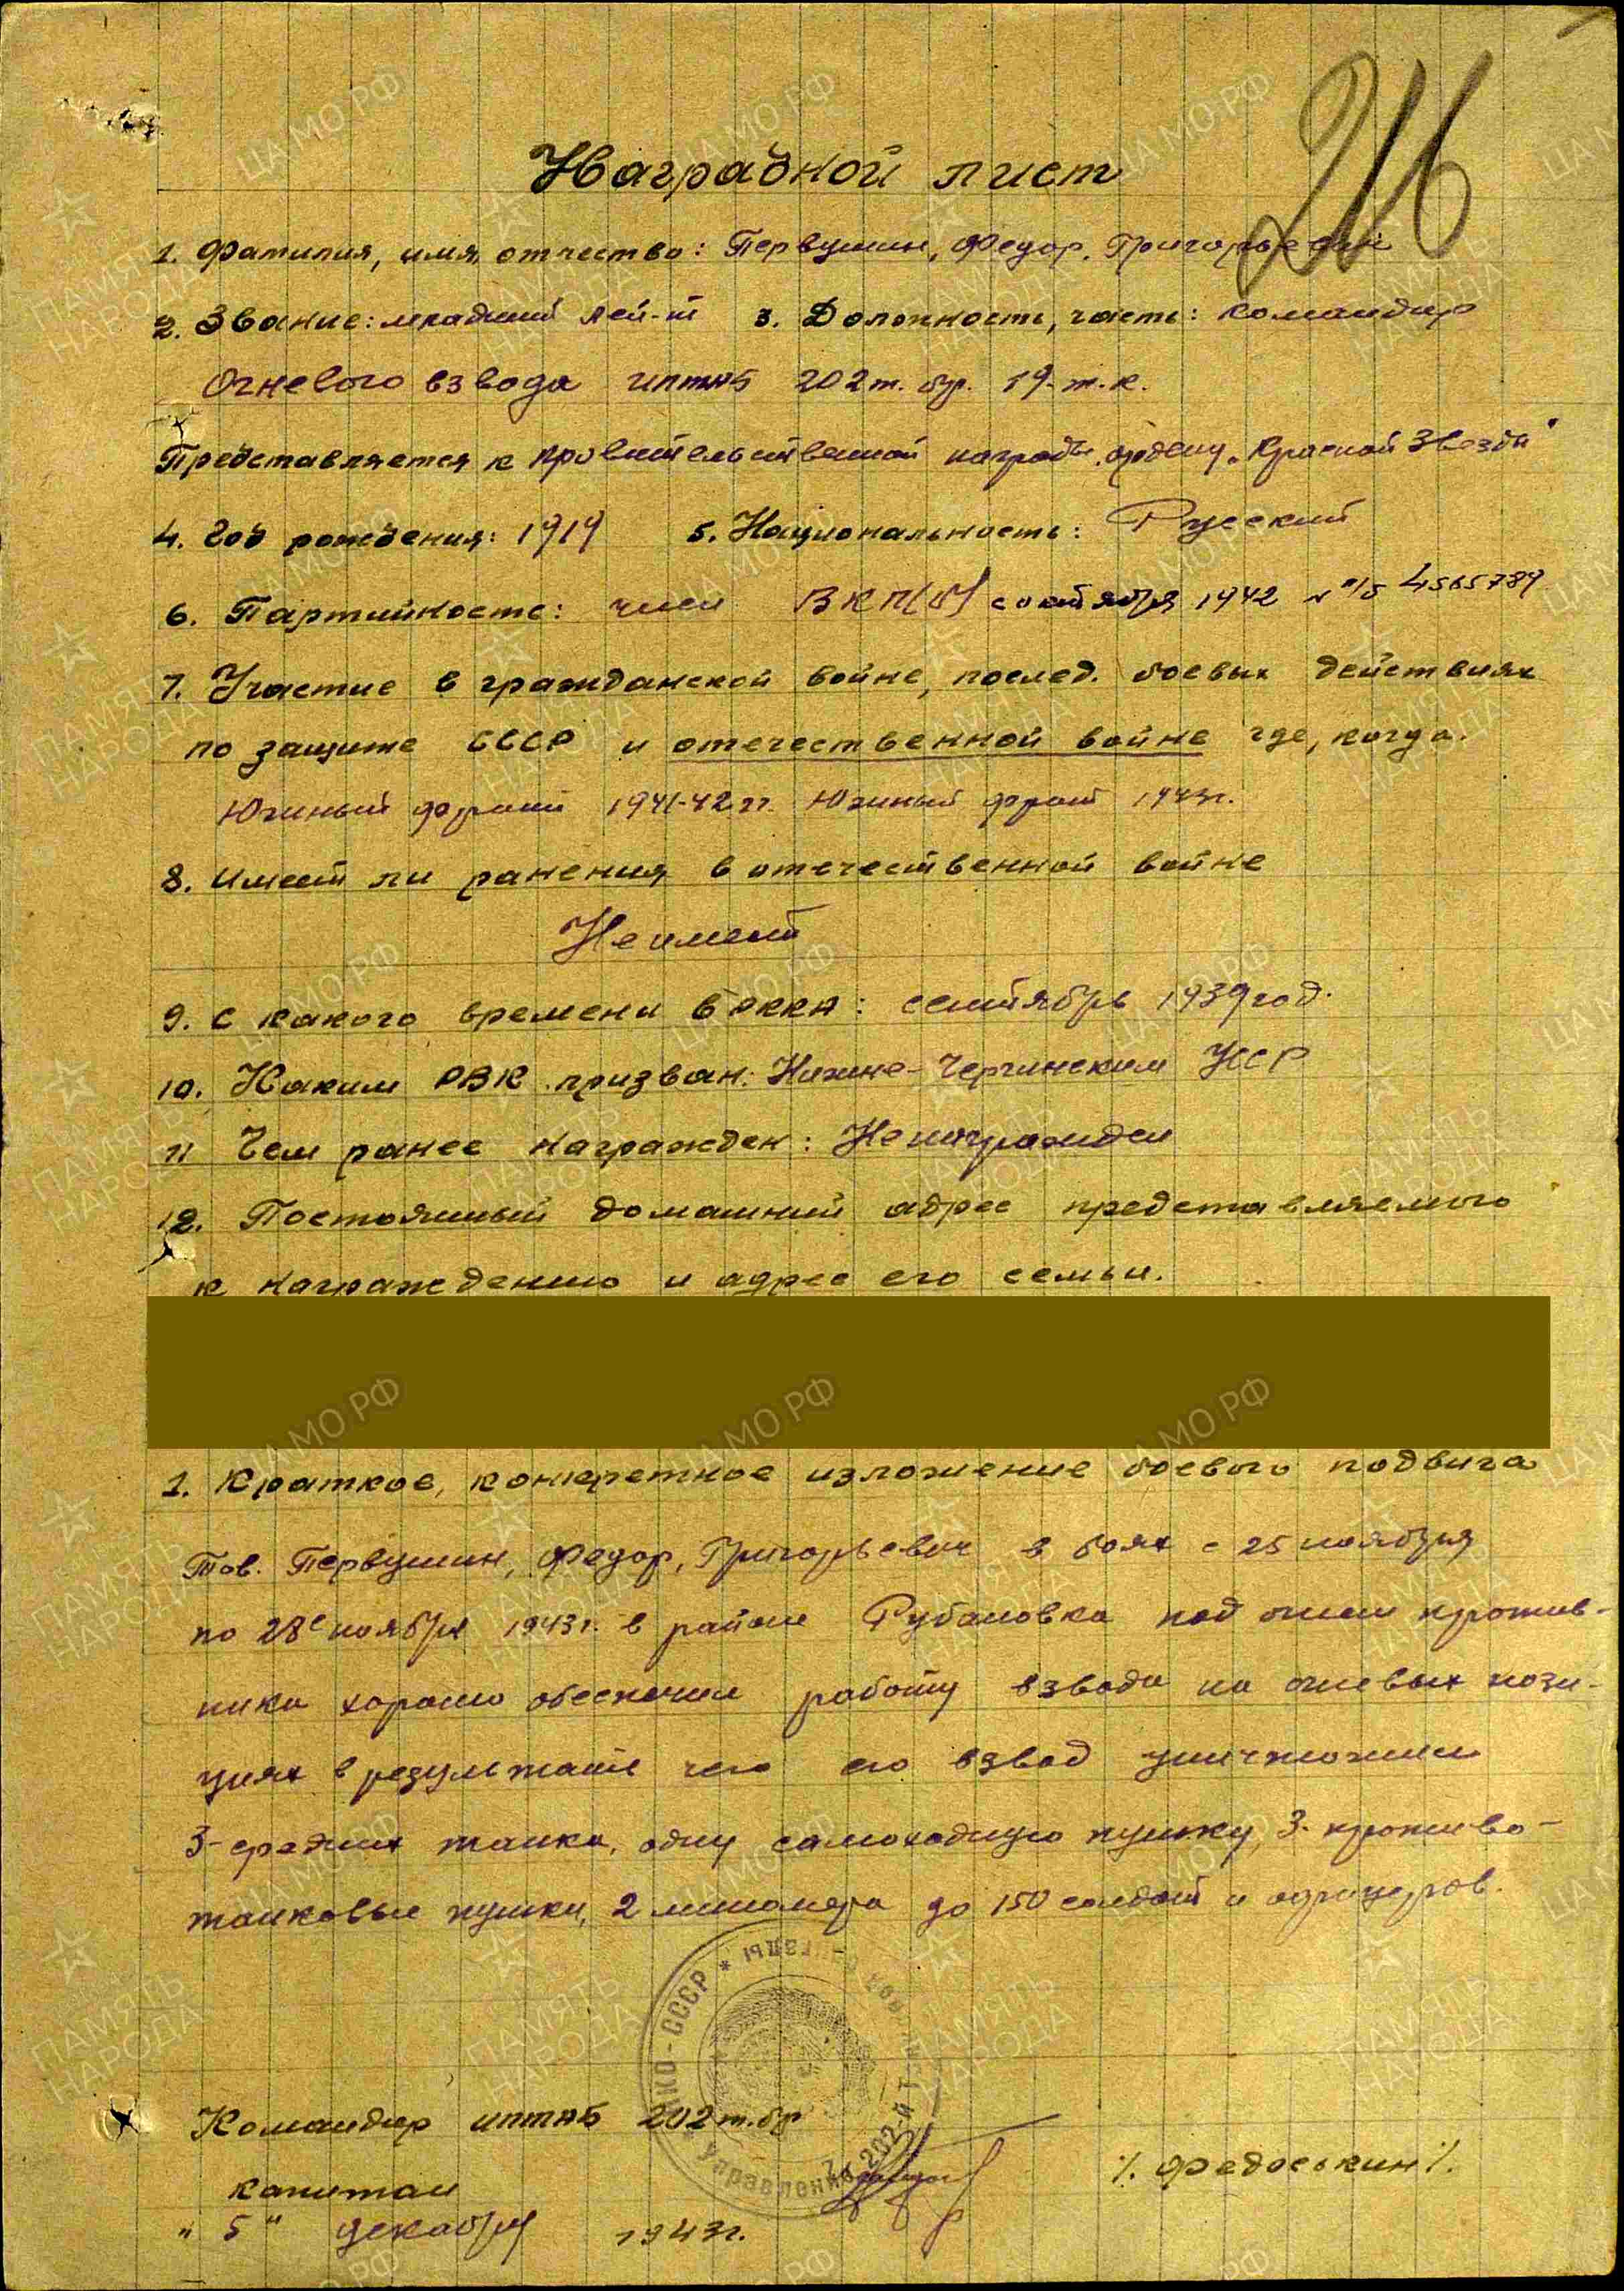 216
Наградной лист
1. Фамилия, имя, отчество: Первушин, Федор, Григорьевич
2. Звание: младший лей-т 3. Должность, часть: командир
Огневого взвода иптаб 202 т. бр. 19. т. к.
Представляется к правительственной награды ордену "Красной Звезды"
4. Год рождения: 1919 5. Национальность: Русский
6. Партийность: член ВКП(б) с октября 1942 п/б 4565789
7. Участие в гражданской войне, послед. боевых действиях
по защите СССР и отечественной войне где, когда.
Южный фронт 1941-42 гг. Южный фронт 1943г.
8. Имеет ли ранения в отечественной войне
Не имеет
9. С какого времени в РККА: сентябрь 1939 год.
10. Каким РВК призван: Нижне- УССР
11 Чем ранее награжден: Не награжден
12. Постоянный домашний адрес представляемого
к награждению и адрес его семьи.
1. Краткое, конкретное изложение боевого подвига
Тов. Первушин, Федор, Григорьевич в боях с 25 ноября
по 28е ноября 1943г. в районе Рубановка под огнем против-
ника хорошо обеспечил работу взвода на огневых пози-
циях в результате чего его взвод уничтожил
3- средних танка, одну самоходную пушку, 3- противо-
танковые пушки, 2 миномера до 150 солдат и офицеров.
НКО - СССР * Управление 202-й Танковой бригады *
Командир иптаб 202 т. бр
капитан /. Федоськин /.
" 5 " декабря 1943г.
ЦАМО РФ
ПАМЯТЬ НАРОДА